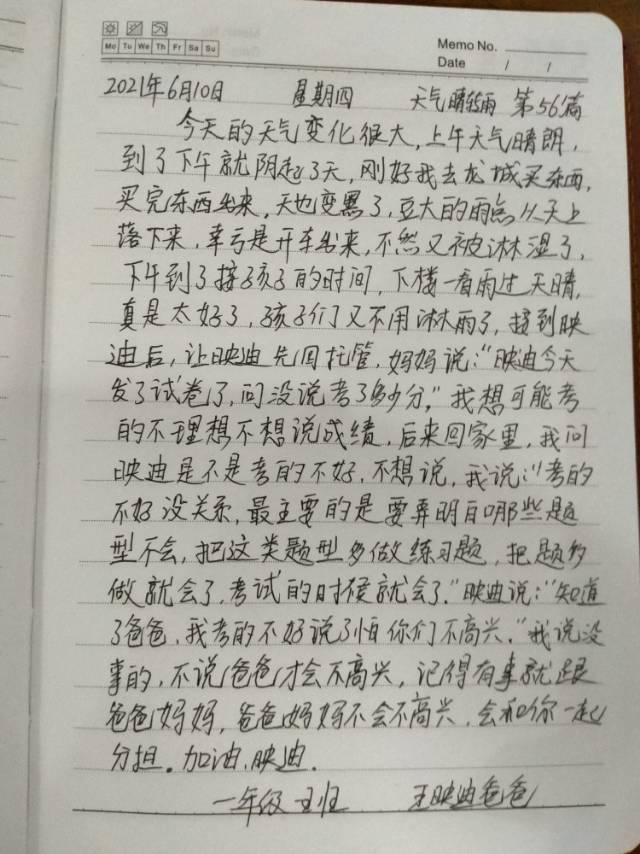 Mo Tu We Th Fr Sa Su
Memo No.
Date / /
2021年6月10日 星期四 天气晴转雨 第56篇
今天的天气变化很大,上午天气晴朗,
到了下午就阴起了天,刚好我去龙城买东西,
买完东西出来,天也变黑了,豆大的雨点从天上
落下来,幸亏是开车出来,不然又被淋湿了,
下午到了接孩子的时间,下楼一看雨过天晴,
真是太好了,孩子们又不用淋雨了,接到映
迪后,让映迪先回托管,妈妈说:“映迪今天
发了试卷了,问没说考了多少分,”我想可能考
的不理想不想说成绩,后来回家里,我问
映迪是不是考的不好,不想说,我说:“考的
不好没关系,最主要的是要弄明白哪些题
型不会,把这类题型多做练习题,把题多
做就会了,考试的时候就会了.”映迪说:“知道
了爸爸,我考的不好说了怕你们不高兴,”我说没
事的,不说爸爸才会不高兴,记得有事就跟
爸爸妈妈,爸爸妈妈不会不高兴,会和你一起
分担。加油,映迪.
一年级 王映迪爸爸